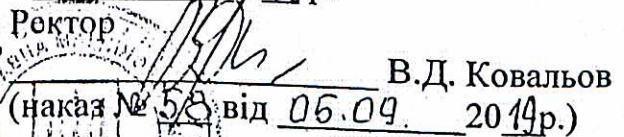 Ректор
В.Д. Ковальов
(наказ № 58 від 06.09. 2019р.)